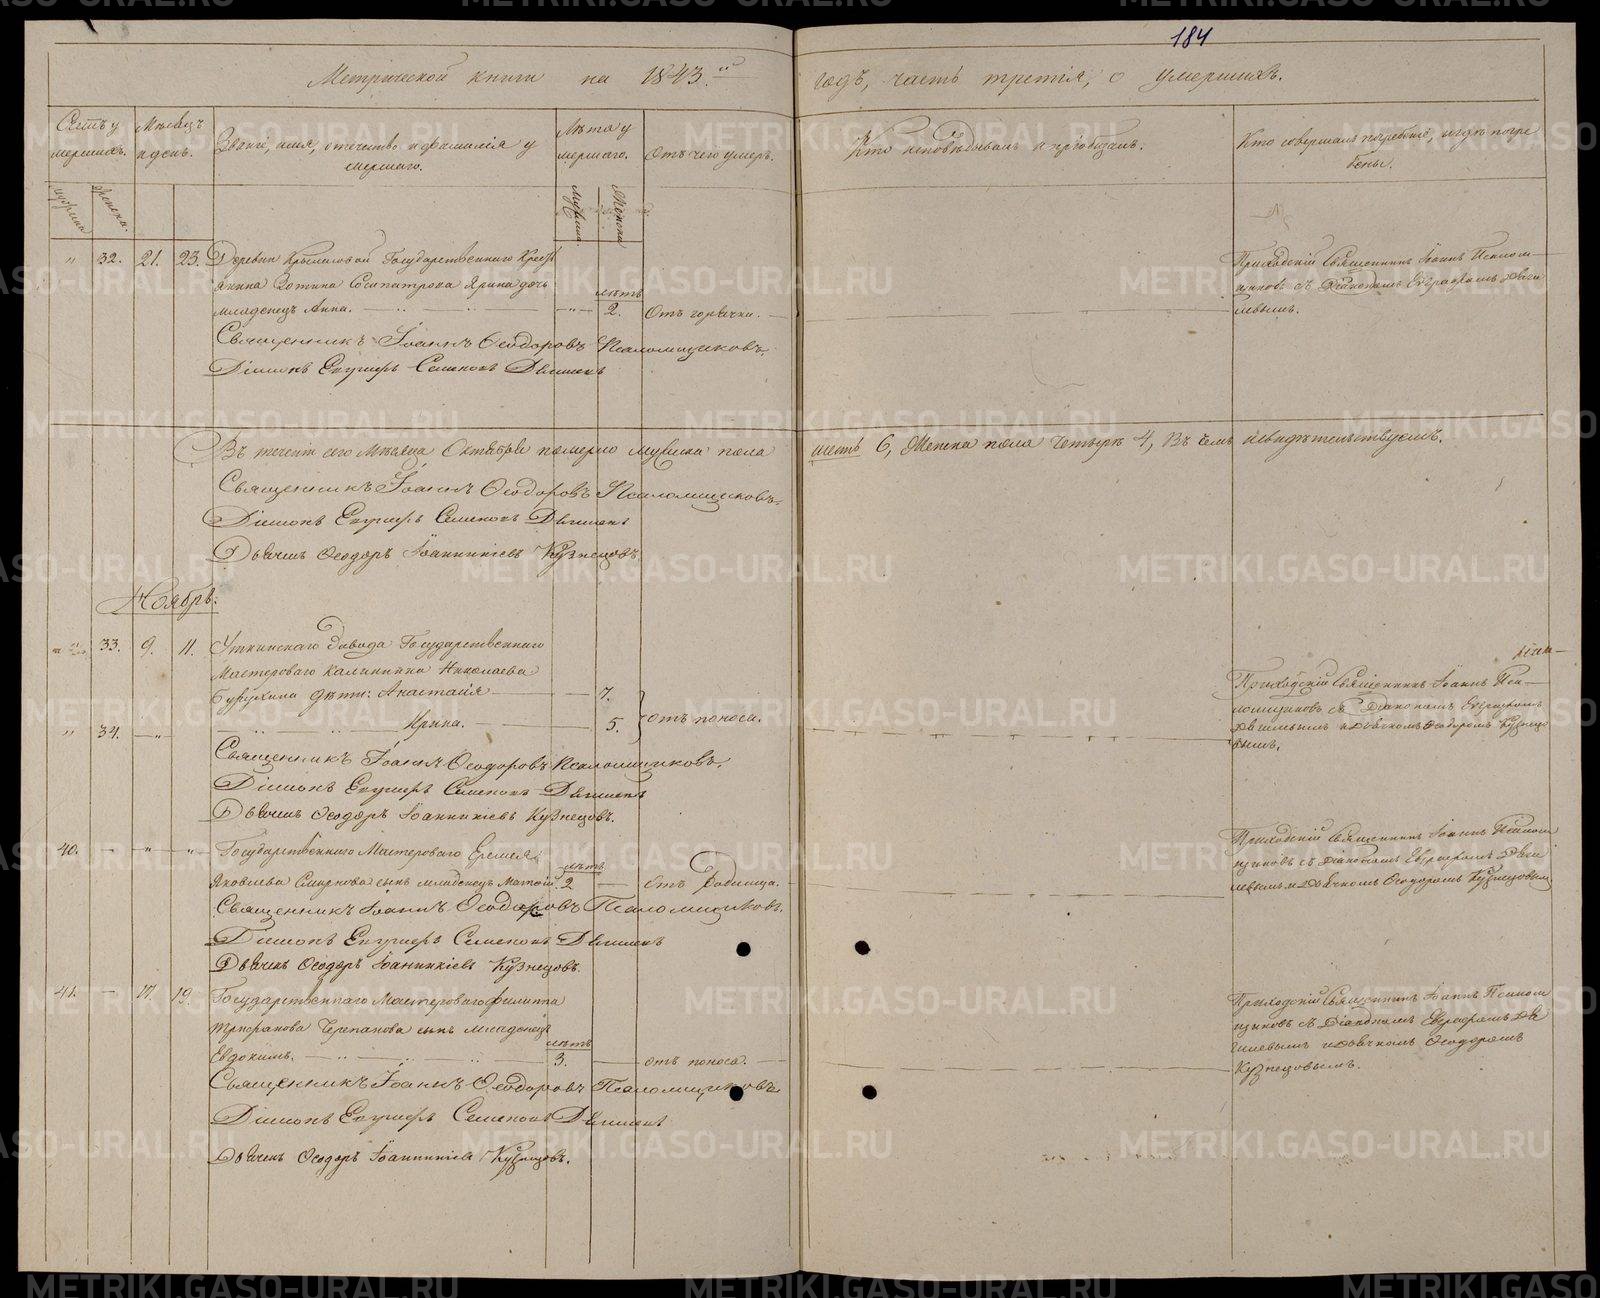 184
Метрической книги на 1843.й годъ, часть третія, о умершихъ.
Счетъ у
мершихъ.
Мѣсяцъ
и день.
Званіе, имя, отечество и фамилія у
мершаго.
Лѣта у
мершаго.
Отъ чего умеръ.
Кто исповѣдывалъ и пріобщалъ.
Кто совершалъ погребеніе, и гдѣ погре
бены.
мужеска
женска
мужеска
женска
" 32. 21. 23. Деревни Государственнаго Крестъ
янина Сосипатрова дочь
младенецъ Анна. лѣтъ 2. Отъ горячки.
Приходскій Священникъ Іоаннъ Псалом
щиковъ съ Діакономъ Евграфомъ Двиги
левымъ.
Священникъ Іоаннъ Ѳеодоровъ Псаломщиковъ.
Діаконъ Евграфъ Семеновъ
Въ теченіи сего Мѣсяца Октября померло мужеска пола шесть 6, Женска пола Четыре 4, Въ чемъ и свидѣтельствуемъ.
Священникъ Іоаннъ Ѳеодоровъ Псаломщиковъ.
Діаконъ Евграфъ Семеновъ
Дьячекъ Ѳеодоръ Іоанникіевъ Кузнецовъ
Ноябрь.
33. 9. 11. Уткинскаго Завода Государственнаго
Мастероваго Калинника Николаева
дѣти: Анастасія 7.
" 34. " Ирина. 5. отъ поноса.
Приходскій Священникъ Іоаннъ Пса
ломщиковъ съ Діакономъ Евграфомъ
Двигилевымъ и дьячкомъ Ѳеодоромъ Кузнецо
вымъ.
Священникъ Іоаннъ Ѳеодоровъ Псаломщиковъ.
Діаконъ Евграфъ Семеновъ
Дьячекъ Ѳеодоръ Іоанникіевъ Кузнецовъ.
40. " " Государственнаго Мастероваго Еремея
Яковлева Смирнова сынъ младенецъ Матѳій. лѣтъ 2 отъ родимца.
Приходскій Священникъ Іоаннъ Псалом
щиковъ съ Діакономъ Евграфомъ Двиги
левымъ и дьячкомъ Ѳеодоромъ Кузнецовым
Священникъ Іоаннъ Ѳеодоровъ Псаломщиковъ.
Діаконъ Евграфъ Семеновъ
Дьячекъ Ѳеодоръ Іоанникіевъ Кузнецовъ.
41. 17. 19. Государственнаго Мастероваго Филиппа
Трифанова Черепанова сынъ младенецъ
Евдокимъ. лѣтъ 3. отъ поноса.
Приходскій Священникъ Іоаннъ Псалом
щиковъ съ Діакономъ Евграфомъ Дви
гилевымъ и дьячкомъ Ѳеодоромъ
Кузнецовымъ.
Священникъ Іоаннъ Ѳеодоровъ Псаломщиковъ
Діаконъ Евграфъ Семеновъ
Дьячекъ Ѳеодоръ Іоанникіевъ Кузнецовъ.
METRIKI.GASO-URAL.RU